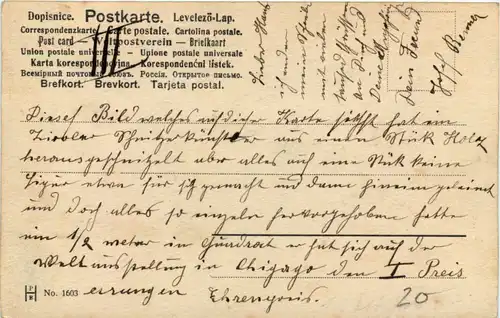 Dopisnice. Postkarte. Levelező-Lap.
Correspondenzkarte. Carte postale. Cartolina postale.
Post card — Weltpostverein — Briefkaart
Union postale universelle — Upione postale universale
Karta korespondencyjna. Korespondenční lístek.
Всемірный почтовый союзъ. Россія. Открытое письмо.
Brefkort. Brevkort. Tarjeta postal.
III
Lieber
ich
meine
mit
Dein Freund
Josef
Dieses Bild welches auf dieser Karte sehst hat ein
Tiroler Schnitzerkünstler aus einen Stük Holz
herausgeschnitzelt aber alles auf eine Stük keine
Figur etwa für sich gemacht und dann hineingeleimt
und doch alles so einzeln hervorgehoben hatte
ein 1/2 meter in Quadrat er hat sich auf der
Weltausstellung in Chigago den I Preis
errungen Ehrenpreis.
No. 1603
20